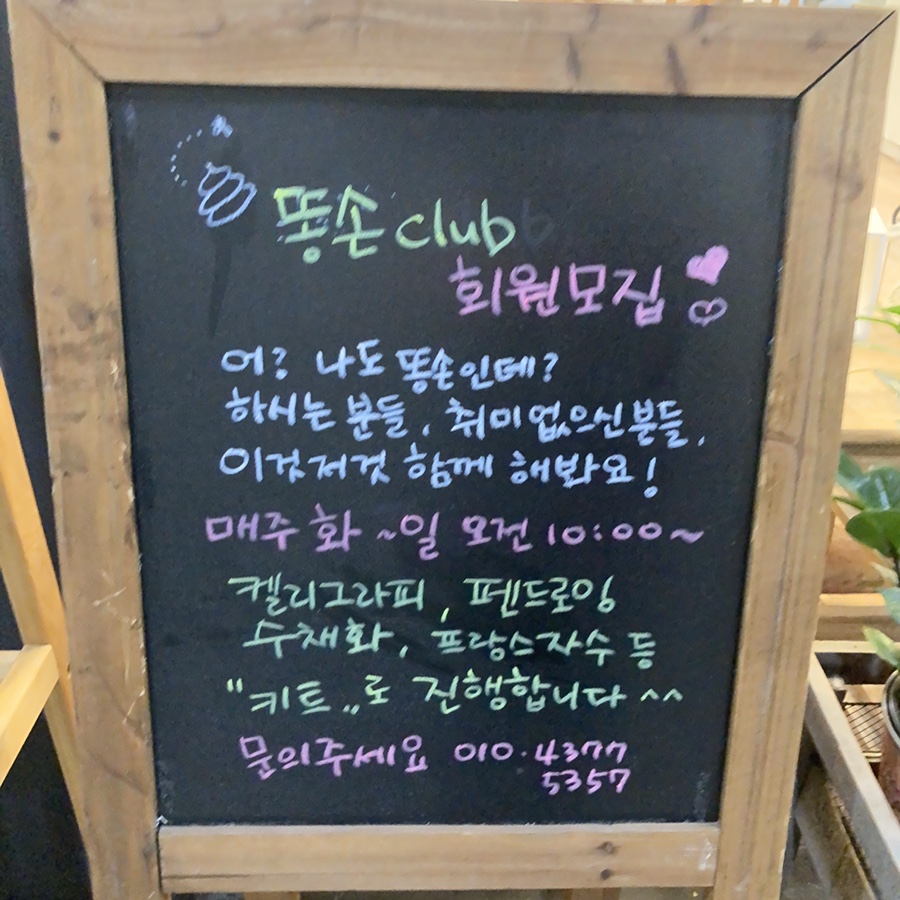 똥손 club
회원모집
어? 나도 똥손인데?
하시는 분들, 취미없으신분들,
이것저것 함께 해봐요!
매주 화~일 오전 10:00~
켈리그라피, 펜드로잉
수채화, 프랑스자수 등
"키트"로 진행합니다 ^^
문의주세요 010.4377
5357